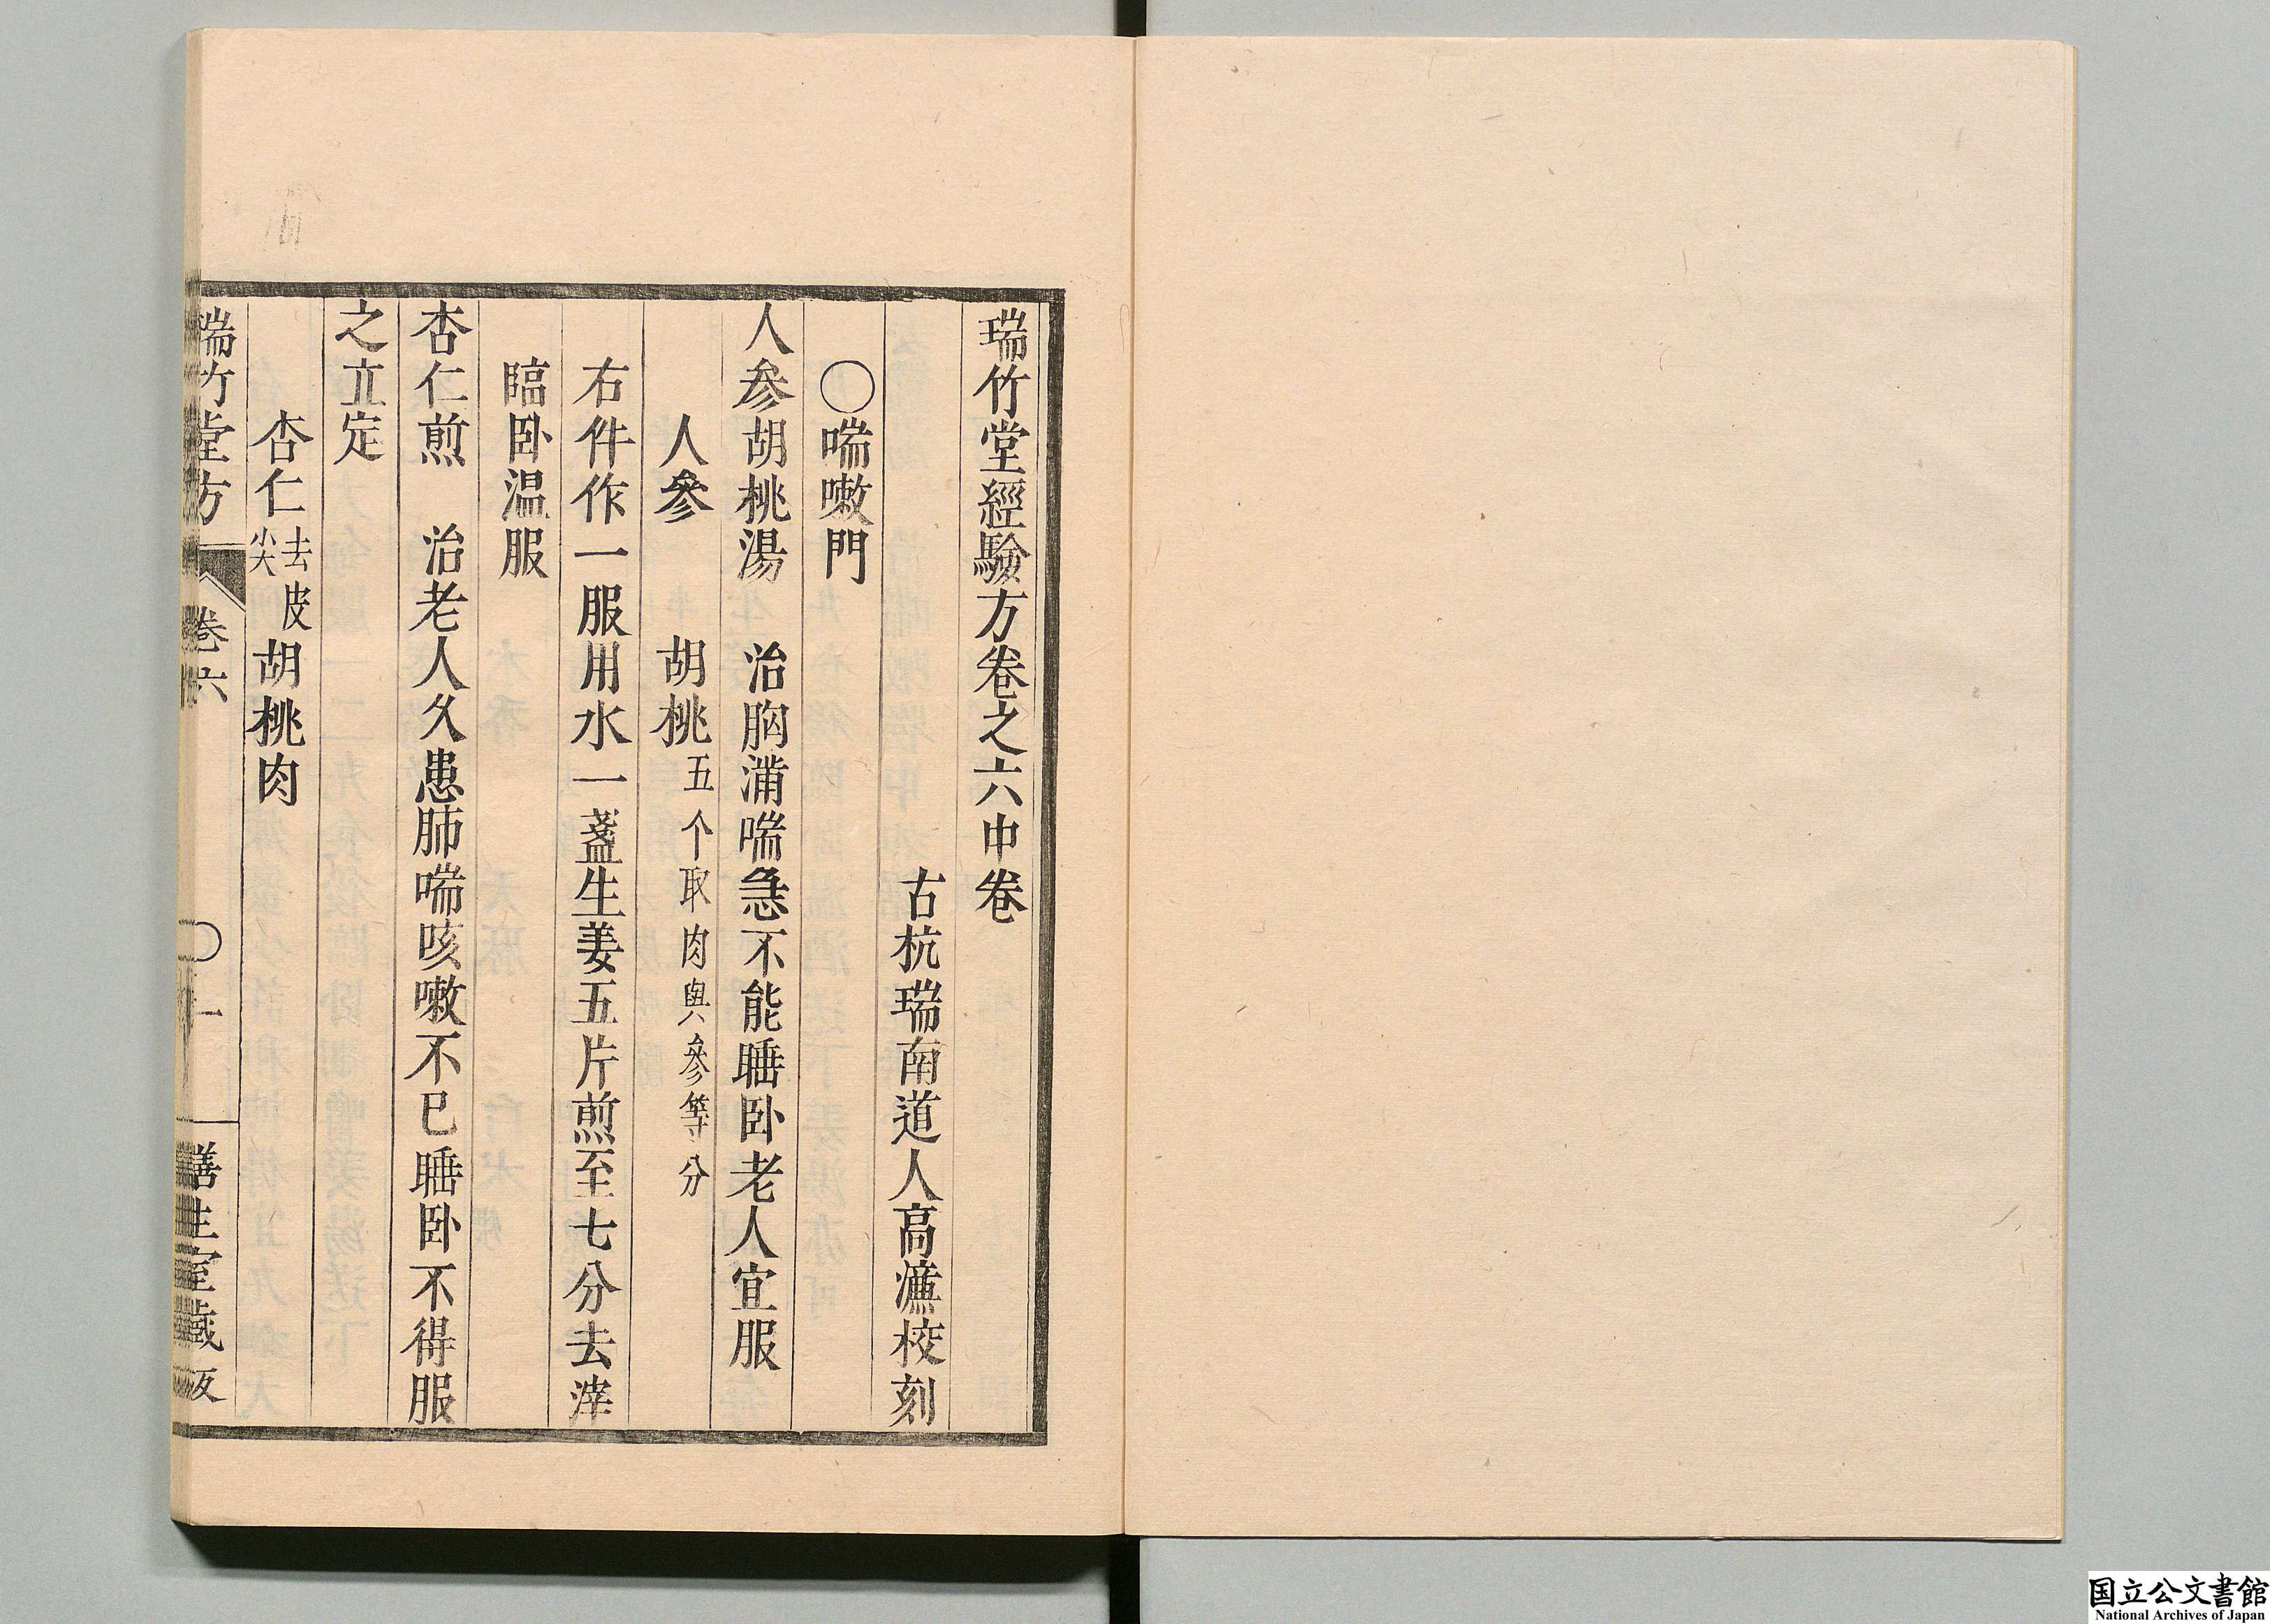 瑞竹堂經驗方卷之六中卷
古杭瑞南道人高濂校刻
○喘嗽門
人參胡桃湯　治胸滿喘急不能睡卧老人宜服
人參　胡桃五个取肉與參等分
右件作一服用水一盞生姜五片煎至七分去滓
臨卧温服
杏仁煎　治老人久患肺喘咳嗽不已睡卧不得服
之立定
杏仁去皮尖　胡桃肉
瑞竹堂方　卷六　○一　生室藏板
国立公文書館
National Archives of Japan